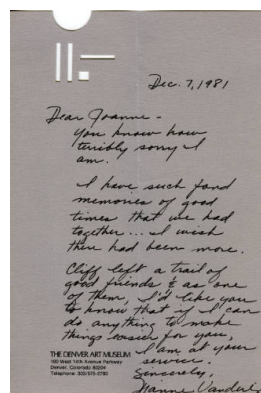 Dec. 7, 1981
Dear Joanne -
You know how
terribly sorry I
am.
I have such fond
memories of good
times that we had
together... I wish
there had been more.
Cliff left a trail of
good friends & as one
of them, I'd like you
to know that if I can
do anything to make
things easier for you,
I am at your
service.
Sincerely,
THE DENVER ART MUSEUM
100 West 14th Avenue Parkway
Denver, Colorado 80204
Telephone 303/575-2793